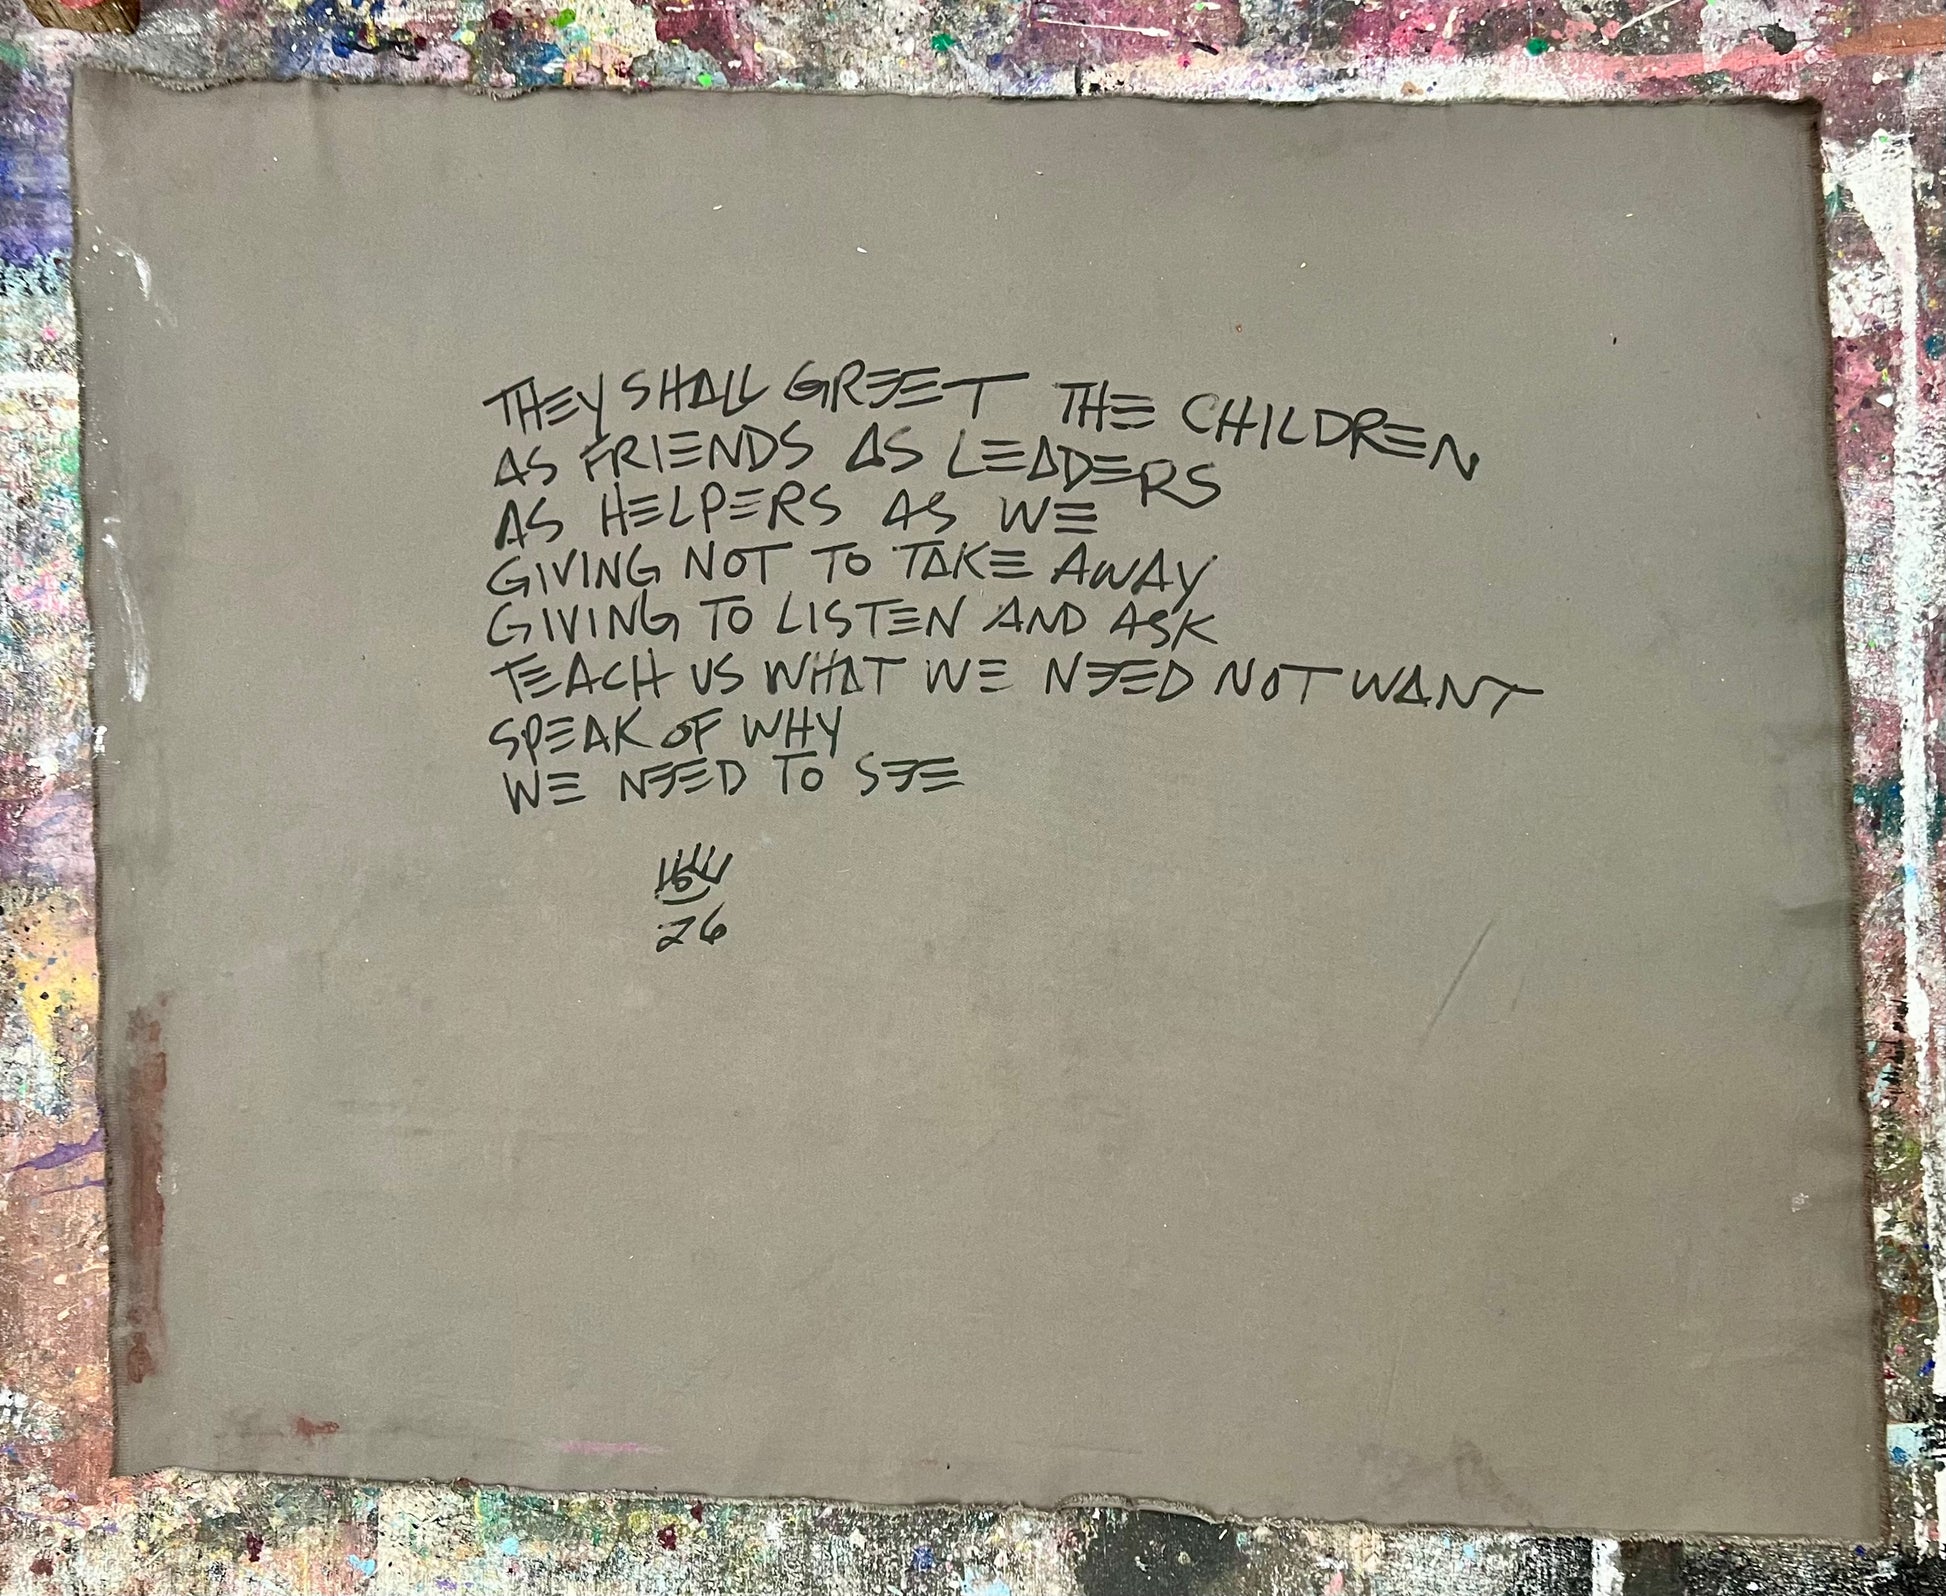 THEY SHALL GREET THE CHILDREN
AS FRIENDS AS LEADERS
AS HELPERS AS WE
GIVING NOT TO TAKE AWAY
GIVING TO LISTEN AND ASK
TEACH US WHAT WE NEED NOT WANT
SPEAK OF WHY
WE NEED TO SEE
26